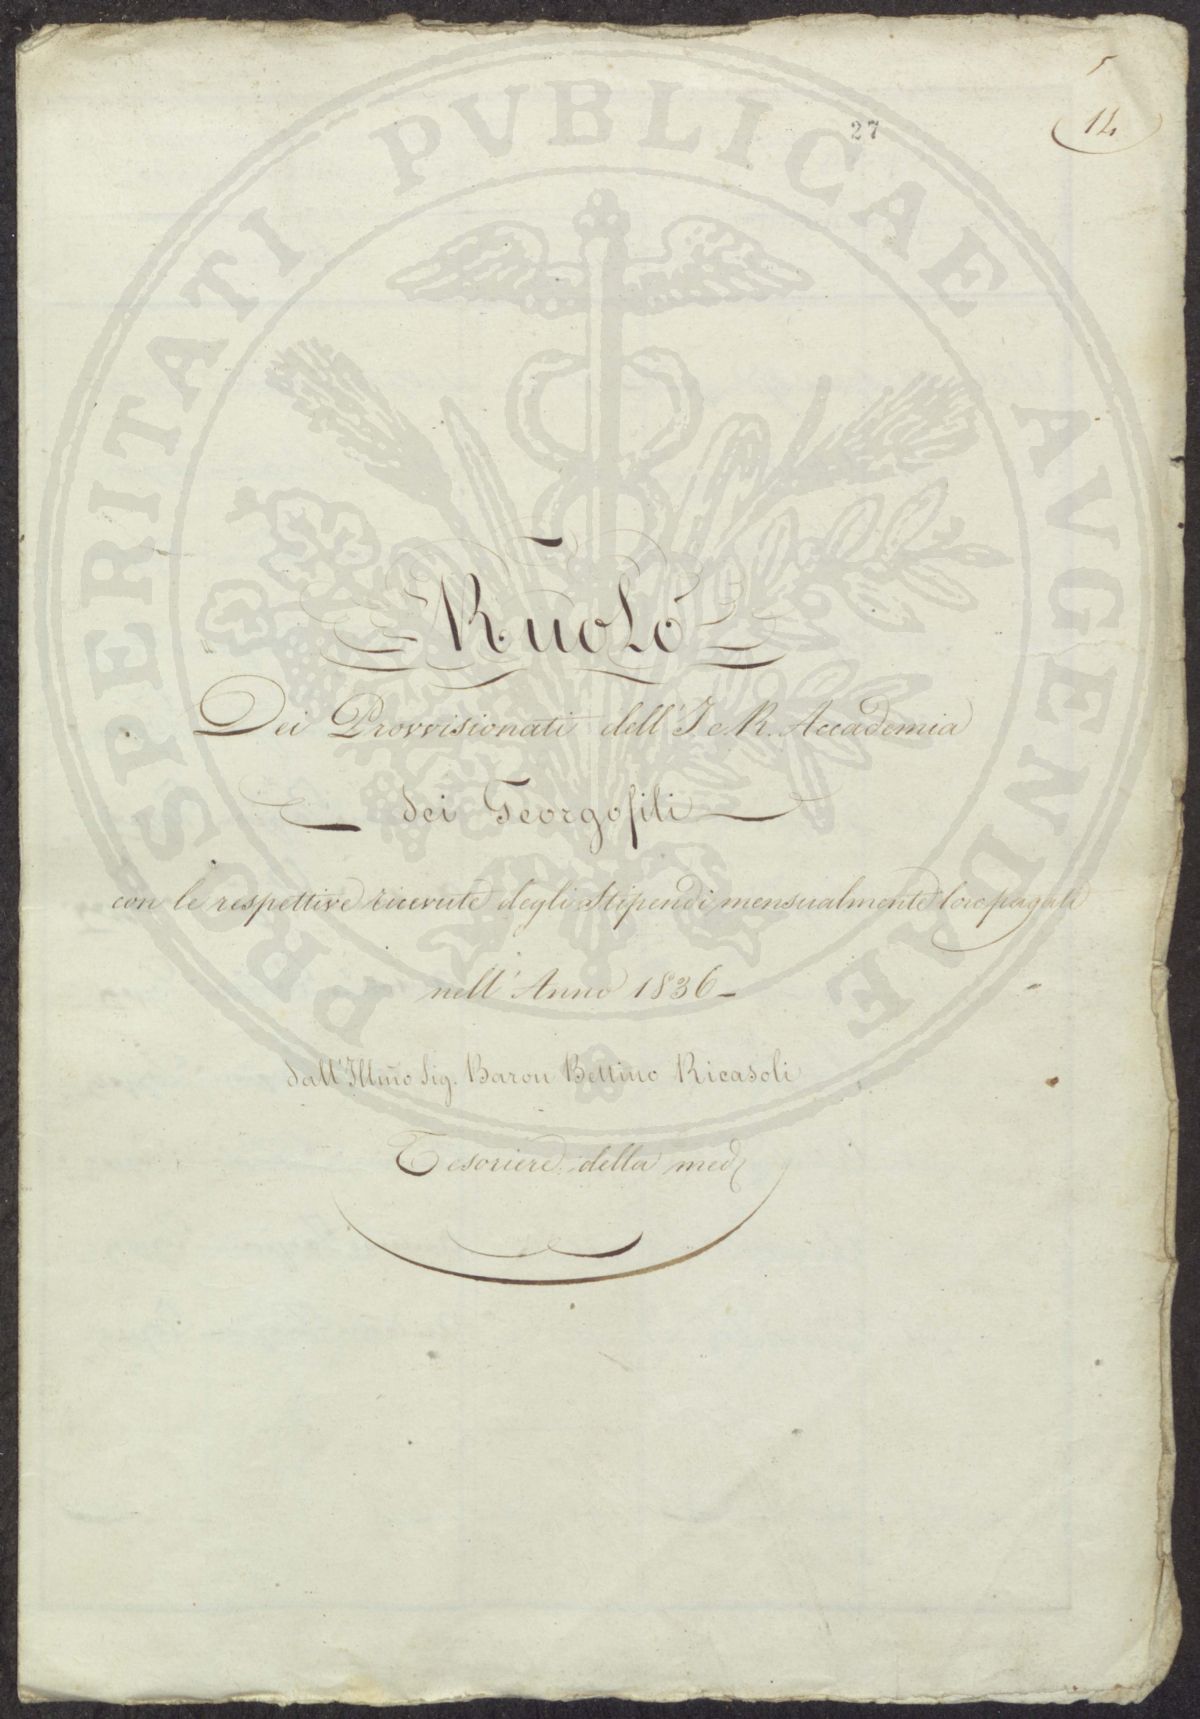 27
14
PROSPERITATI PVBLICAE AVGENDAE
Ruolo
Dei Provvisionati dell' I. e R. Accademia
dei Georgofili
con le respettive ricevute degli Stipendi mensualmente loro pagati
nell' Anno 1836 -
dall' Illmo Sig. Baron Bettino Ricasoli
Tesoriere della med